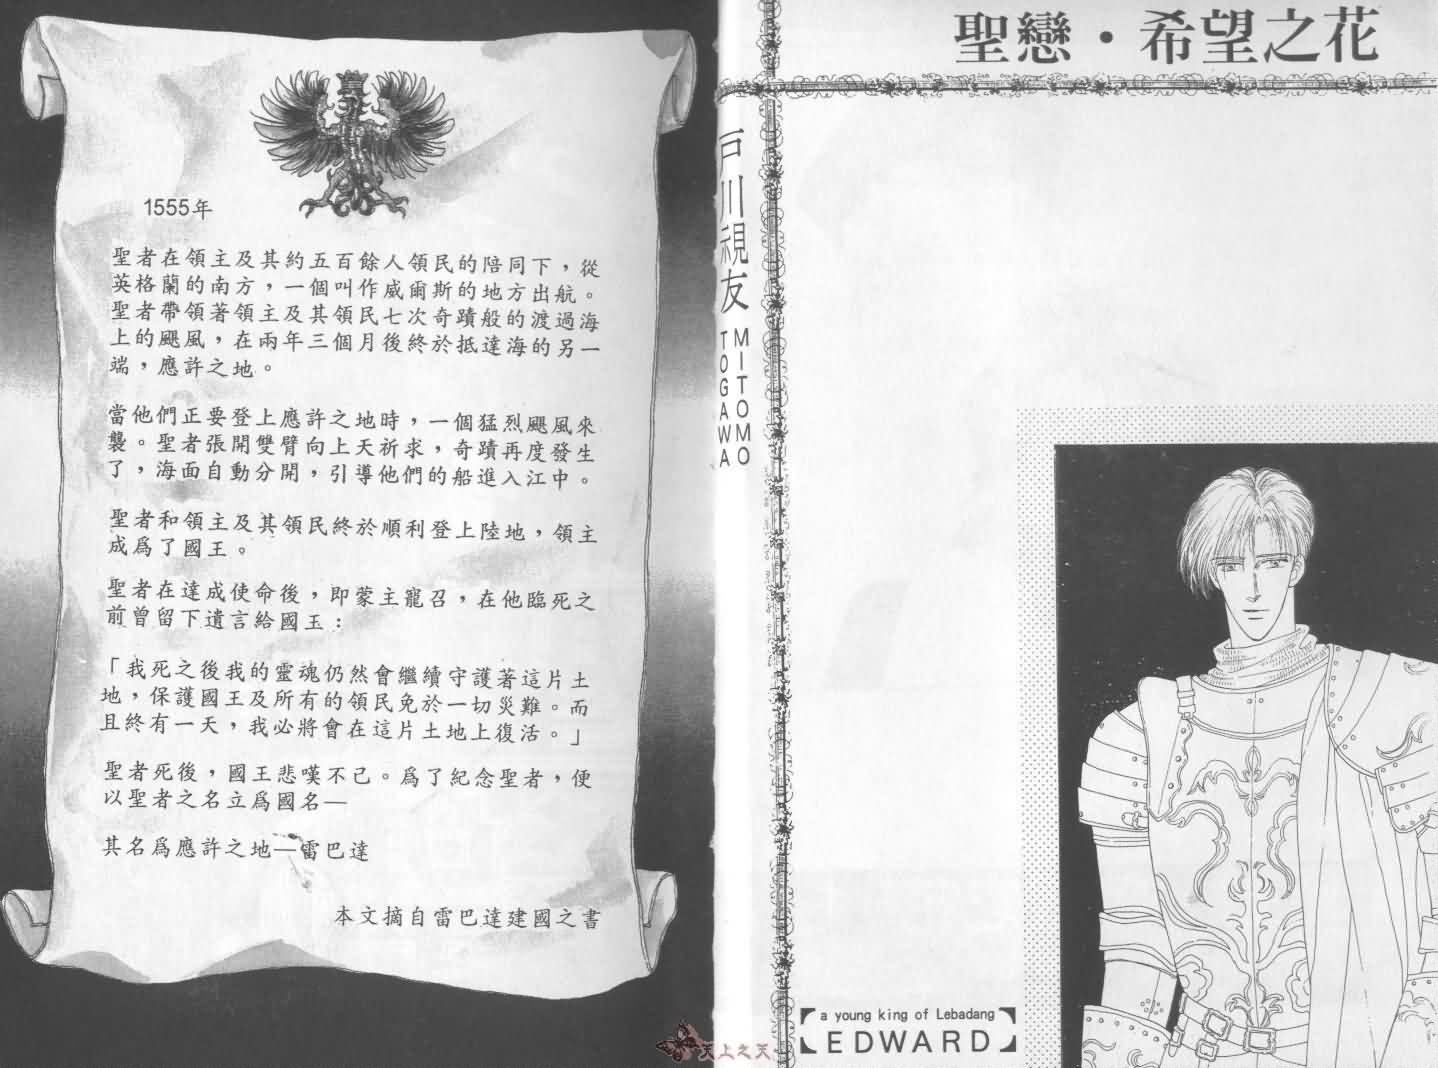 1555年
聖者在領主及其約五百餘人領民的陪同下，從
英格蘭的南方，一個叫作威爾斯的地方出航。
聖者帶領著領主及其領民七次奇蹟般的渡過海
上的颶風，在兩年三個月後終於抵達海的另一
端，應許之地。
當他們正要登上應許之地時，一個猛烈颶風來
襲。聖者張開雙臂向上天祈求，奇蹟再度發生
了，海面自動分開，引導他們的船進入江中。
聖者和領主及其領民終於順利登上陸地，領主
成爲了國王。
聖者在達成使命後，即蒙主寵召，在他臨死之
前曾留下遺言給國王：
「我死之後我的靈魂仍然會繼續守護著這片土
地，保護國王及所有的領民免於一切災難。而
且終有一天，我必將會在這片土地上復活。」
聖者死後，國王悲嘆不已。爲了紀念聖者，便
以聖者之名立爲國名—
其名爲應許之地—雷巴達
本文摘自雷巴達建國之書
天上之天
聖戀・希望之花
戸川視友
MITOMO
TOGAWA
【a young king of Lebadang】
【EDWARD】